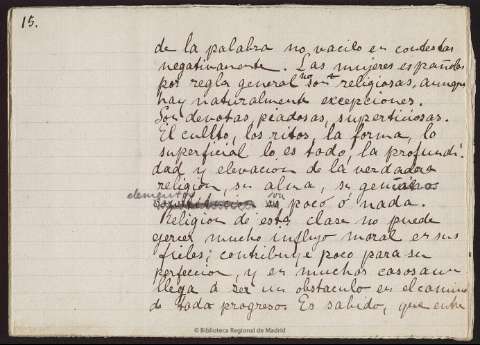 15.
de la palabra no vacilo en contestar
negativamente. Las mujeres españolas
por regla general no son religiosas, aunque
hay naturalmente excepciones.
Son devotas, piadosas, superticiosas.
El cultto, los ritos, la forma, lo
superficial lo es todo, la profundi-
dad y elevacion de la verdadera
religión, su alma, su genuino
elemento son poco ó nada.
Religion de esta clase no puede
ejercer mucho influjo moral en sus
fieles; contribuye poco para su
perfeccion, y en muchos casos aun
llega á ser un obstaculo en el camino
de todo progreso. Es sabido, que entre
© Biblioteca Regional de Madrid